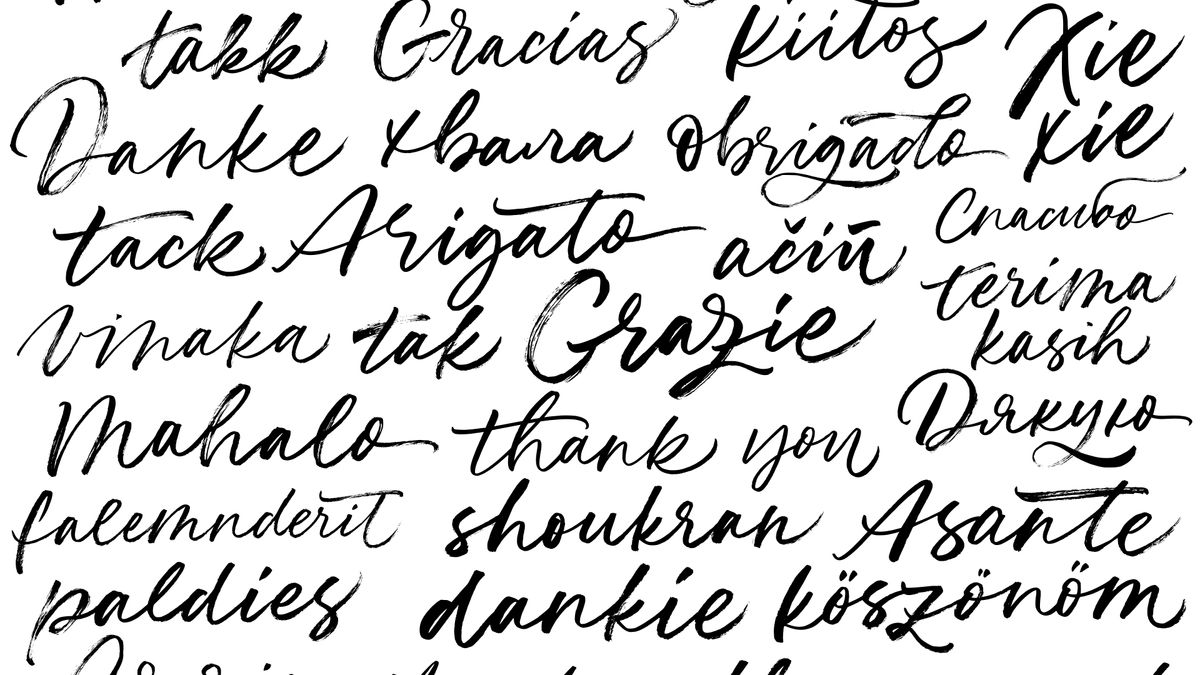 takk Gracias kiitos Xie
Danke хвала obrigado xie
tack Arigato ačiū Спасибо
vinaka tak Grazie terima
kasih
Mahalo thank you Дякую
falemnderit shoukran Asante
paldies dankie köszönöm